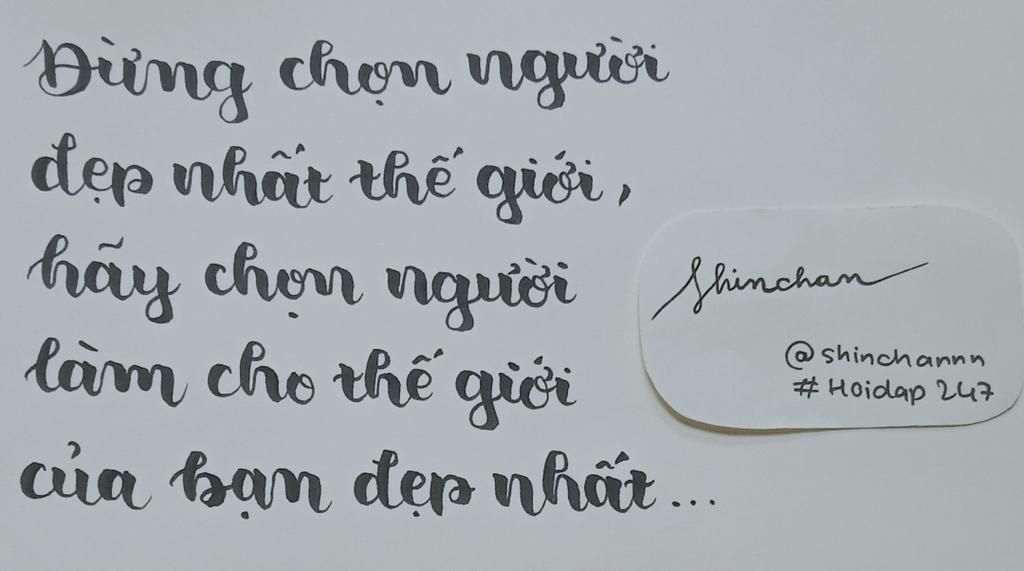 Đừng chọn người
đẹp nhất thế giới,
hãy chọn người
làm cho thế giới
của bạn đẹp nhất...
Shinchan
@shinchannn
# Hoidap 247